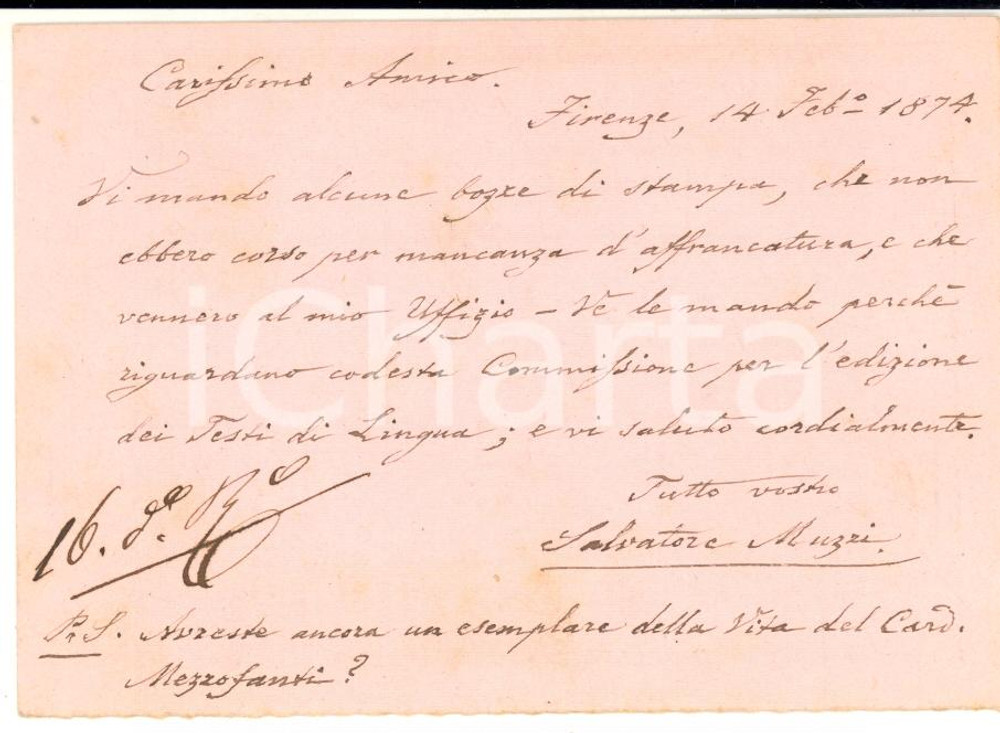 Carissimo Amico.
Firenze, 14 Feb.º 1874.
Vi mando alcune bozze di stampa, che non
ebbero corso per mancanza d'affrancatura, e che
vennero al mio Uffizio – Ve le mando perchè
riguardano codesta Commissione per l'edizione
dei Testi di Lingua; e vi saluto cordialmente.
Tutto vostro
Salvatore Muzzi.
16. dº.
P.S. Avreste ancora un esemplare della Vita del Card.
Mezzofanti?
iCharta